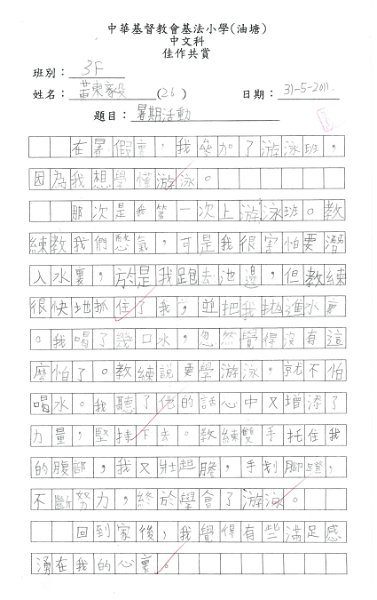 中華基督教會基法小學(油塘)
中文科
佳作共賞
班別：3F
姓名：黃東家毅(26) 日期：31-5-2011
題目：暑期活動
在暑假裏，我參加了游泳班，
因為我想學懂游泳。
那次是我第一次上游泳班。教
練教我們憋氣，可是我很害怕要潛
入水裏，於是我跑去池邊，但教練
很快地抓住了我，並把我拋進水裏
。我喝了幾口水，忽然覺得沒有這
麼怕了。教練說要學游泳，就不怕
喝水。我聽了他的話心中又增添了
力量，堅持下去。教練雙手托住我
的腹部，我又壯起膽，手划腳蹬，
不斷努力，終於學會了游泳。
回到家後，我覺得有些滿足感
湧在我的心裏。